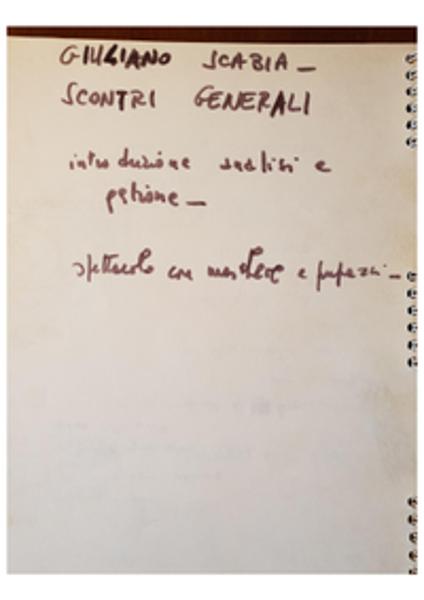 GIULIANO SCABIA _
SCONTRI GENERALI
introduzione analisi e
gestione _
spettacolo con maschere e pupazzi _